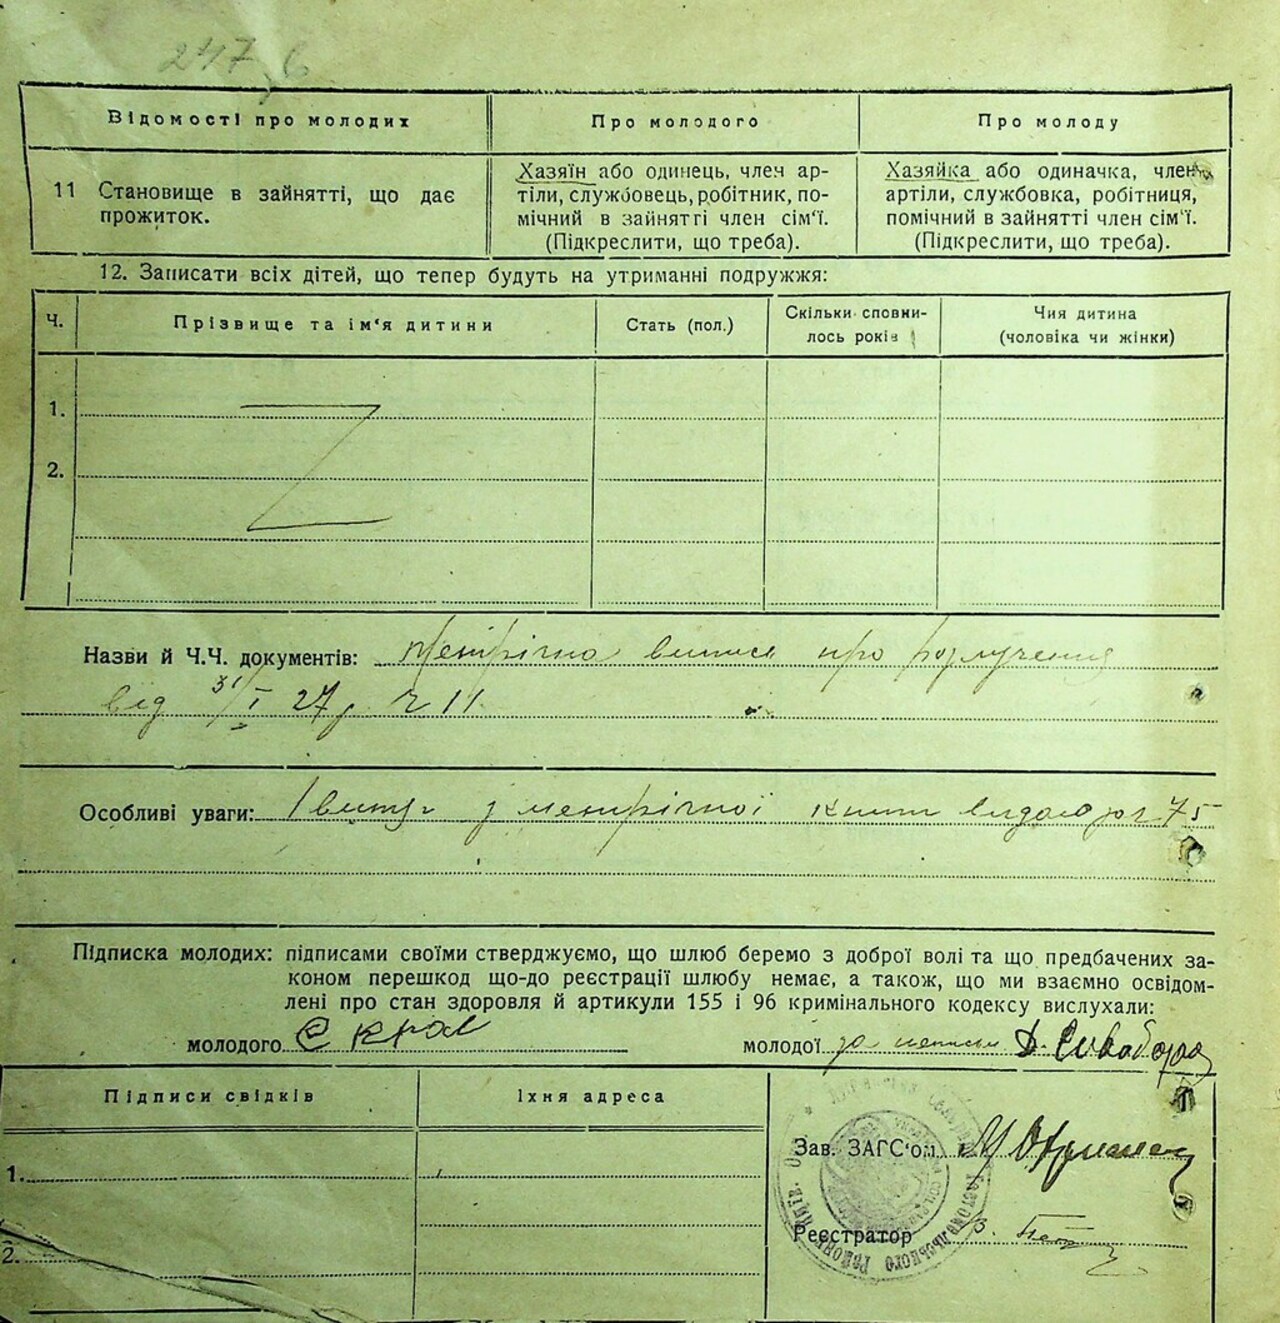 247
Відомості про молодих
Про молодого
Про молоду
11 Становище в зайнятті, що дає
прожиток.
Хазяїн або одинець, член ар-
тіли, службовець, робітник, по-
мічний в зайнятті член сім'ї.
(Підкреслити, що треба).
Хазяйка або одиначка, член
артіли, службовка, робітниця,
помічний в зайнятті член сім'ї.
(Підкреслити, що треба).
12. Записати всіх дітей, що тепер будуть на утриманні подружжя:
Ч.
Прізвище та ім'я дитини
Стать (пол.)
Скільки сповни-
лось років
Чия дитина
(чоловіка чи жінки)
1.
2.
Назви й Ч.Ч. документів: Метрічна випись про розлучення
від 31/I 27 р ч 11
Особливі уваги: з метрічної книги 75
Підписка молодих: підписами своїми стверджуємо, що шлюб беремо з доброї волі та що предбачених за-
коном перешкод що-до реєстрації шлюбу немає, а також, що ми взаємно освідом-
лені про стан здоровля й артикули 155 і 96 кримінального кодексу вислухали:
молодого
молодої
Підписи свідків
Їхня адреса
1.
2.
Зав. ЗАГС'ом
Реєстратор